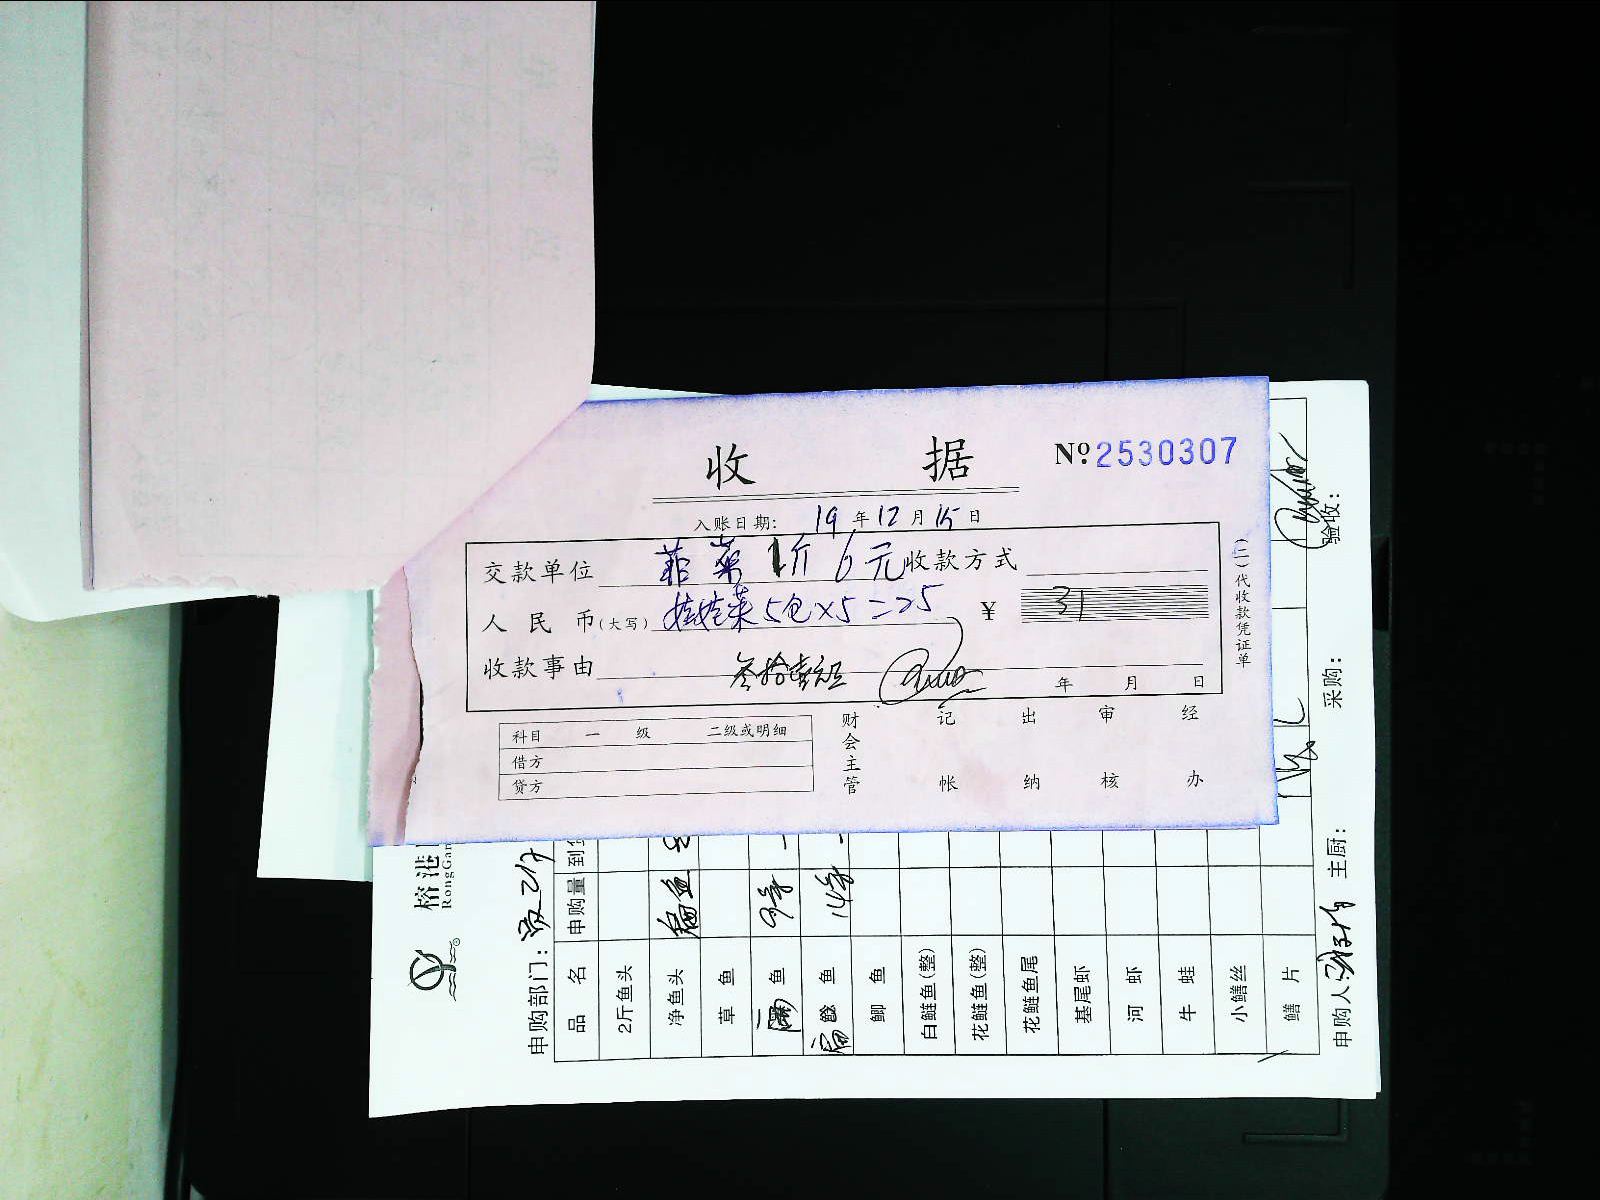 收 据
Nº 2530307
入账日期: 19 年 12 月 15 日
交款单位 韮菜 1斤 6元 收款方式
人民币(大写) 娃娃菜 5包×5=25 ¥ 31
收款事由 叁拾壹元
年 月 日
(二)代收款凭证单
科目 一 级 二级或明细
借方
贷方
财会主管 记帐 出纳 审核 经办
榕港
RongGan
申购部门:
品 名 申购量 到
2斤鱼头
净鱼头
草 鱼
鱼
鱼
鲫 鱼
白鲢鱼(整)
花鲢鱼(整)
花鲢鱼尾
基尾虾
河 虾
牛 蛙
小鳝丝
鳝 片
申购人 主厨: 采购: 验收: